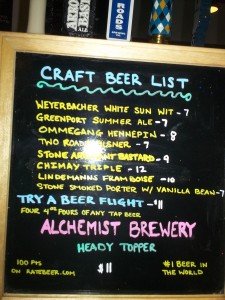 ROADS
CRAFT BEER LIST
WEYERBACHER WHITE SUN WIT - 7
GREENPORT SUMMER ALE - 7
OMMEGANG HENNEPIN - 8
TWO ROADS PILSNER - 7
STONE ARROGANT BASTARD - 9
CHIMAY TRIPLE - 12
LINDEMANNS FRAMBOISE - 10
STONE SMOKED PORTER W/ VANILLA BEAN - 7
TRY A BEER FLIGHT - $11
FOUR 4oz POURS OF ANY TAP BEER
ALCHEMIST BREWERY
HEADY TOPPER
100 PTS
ON RATEBEER.COM
$11
#1 BEER IN
THE WORLD